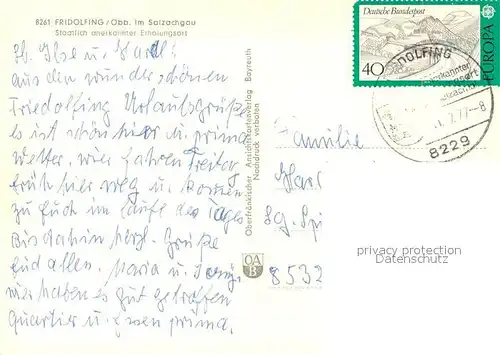 8261 FRIDOLFING / Obb. im Salzachgau
Staatlich anerkannter Erholungsort
Ilse u.
aus dem wunderschönen
Friedolfing Urlaubsgrüße
es ist schön hier u. prima
Wetter, wir fahren Freitag
früh hier weg u. kommen
zu Euch im Laufe des Tages
Bis dahin herzl. Grüße
Euch allen. Maria u.
wir haben es gut getroffen
Quartier u. Essen prima.
Oberfränkischer Ansichtskartenverlag Bayreuth
Nachdruck verboten
OA
B
Deutsche Bundespost
40
EUROPA
DOLFING
anerkannter
77-8
8229
Familie
8532
privacy protection
Datenschutz